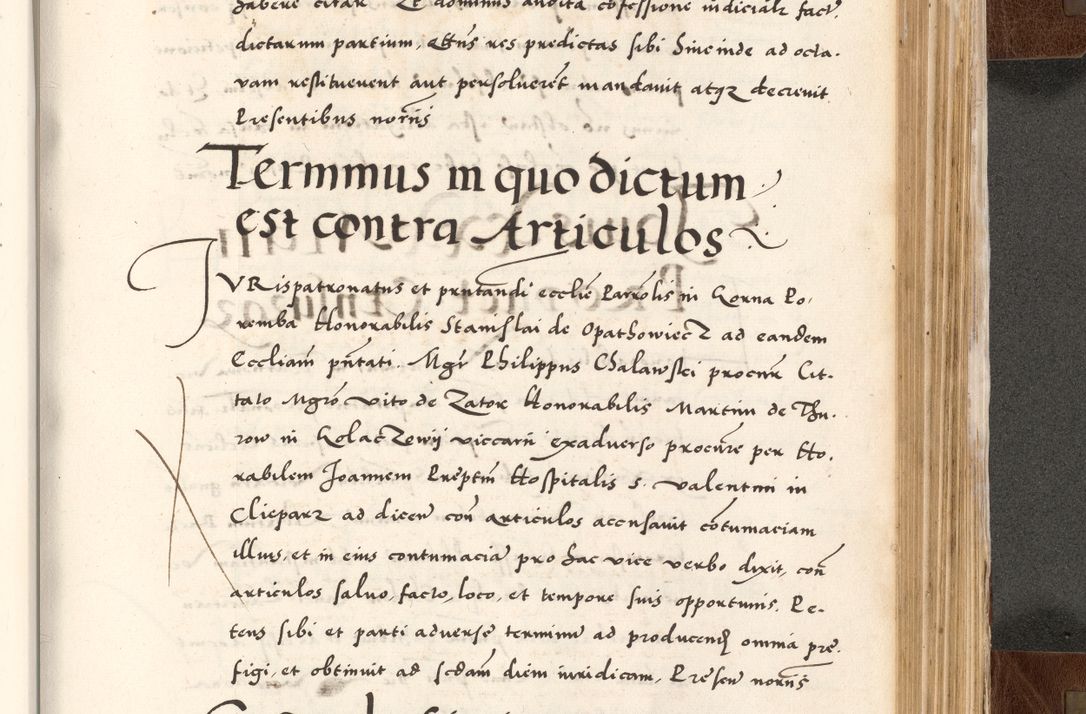 habere citar Et dominus audita cōfessione iudiciali fact
dictarum partium, Ettñs res predictas sibi hincinde ad octa-
vam restituerent aut persolverēt mandavit atqz decrevit
Presentibus norīis
Terminus in quo dictum
est contra Articulos
IURispatronatus et pr̄ntandi ecclīe Parrolis in Gorna Po-
remba Honorabilis Stanislai de Opathowiecz ad eandem
Eccliam pn̄tati. Mgr̄ Philippus Chalawski procur̄ Cit-
tato Mgrō Vito de Zator Honorabilis Martini de Thu-
row in Golaczewij viccarii exadverso procur̄e per Ho.
rabilem Joannem Preptm̄ Hospitalis s. Valentini in
Clieparz ad dicen̄ con̄ articulos accusavit cōtumaciam
illius, et in eius contumaciā pro hac vice verbo dixit, con̄
articulos salvo, facto, loco, et tempore suis opportunis. Pe-
tens sibi et parti adverse terminū ad producend̄ omnia pre-
figi, et obtinuit ad scdam̄ diem iuridicam, Presen̄ norīis